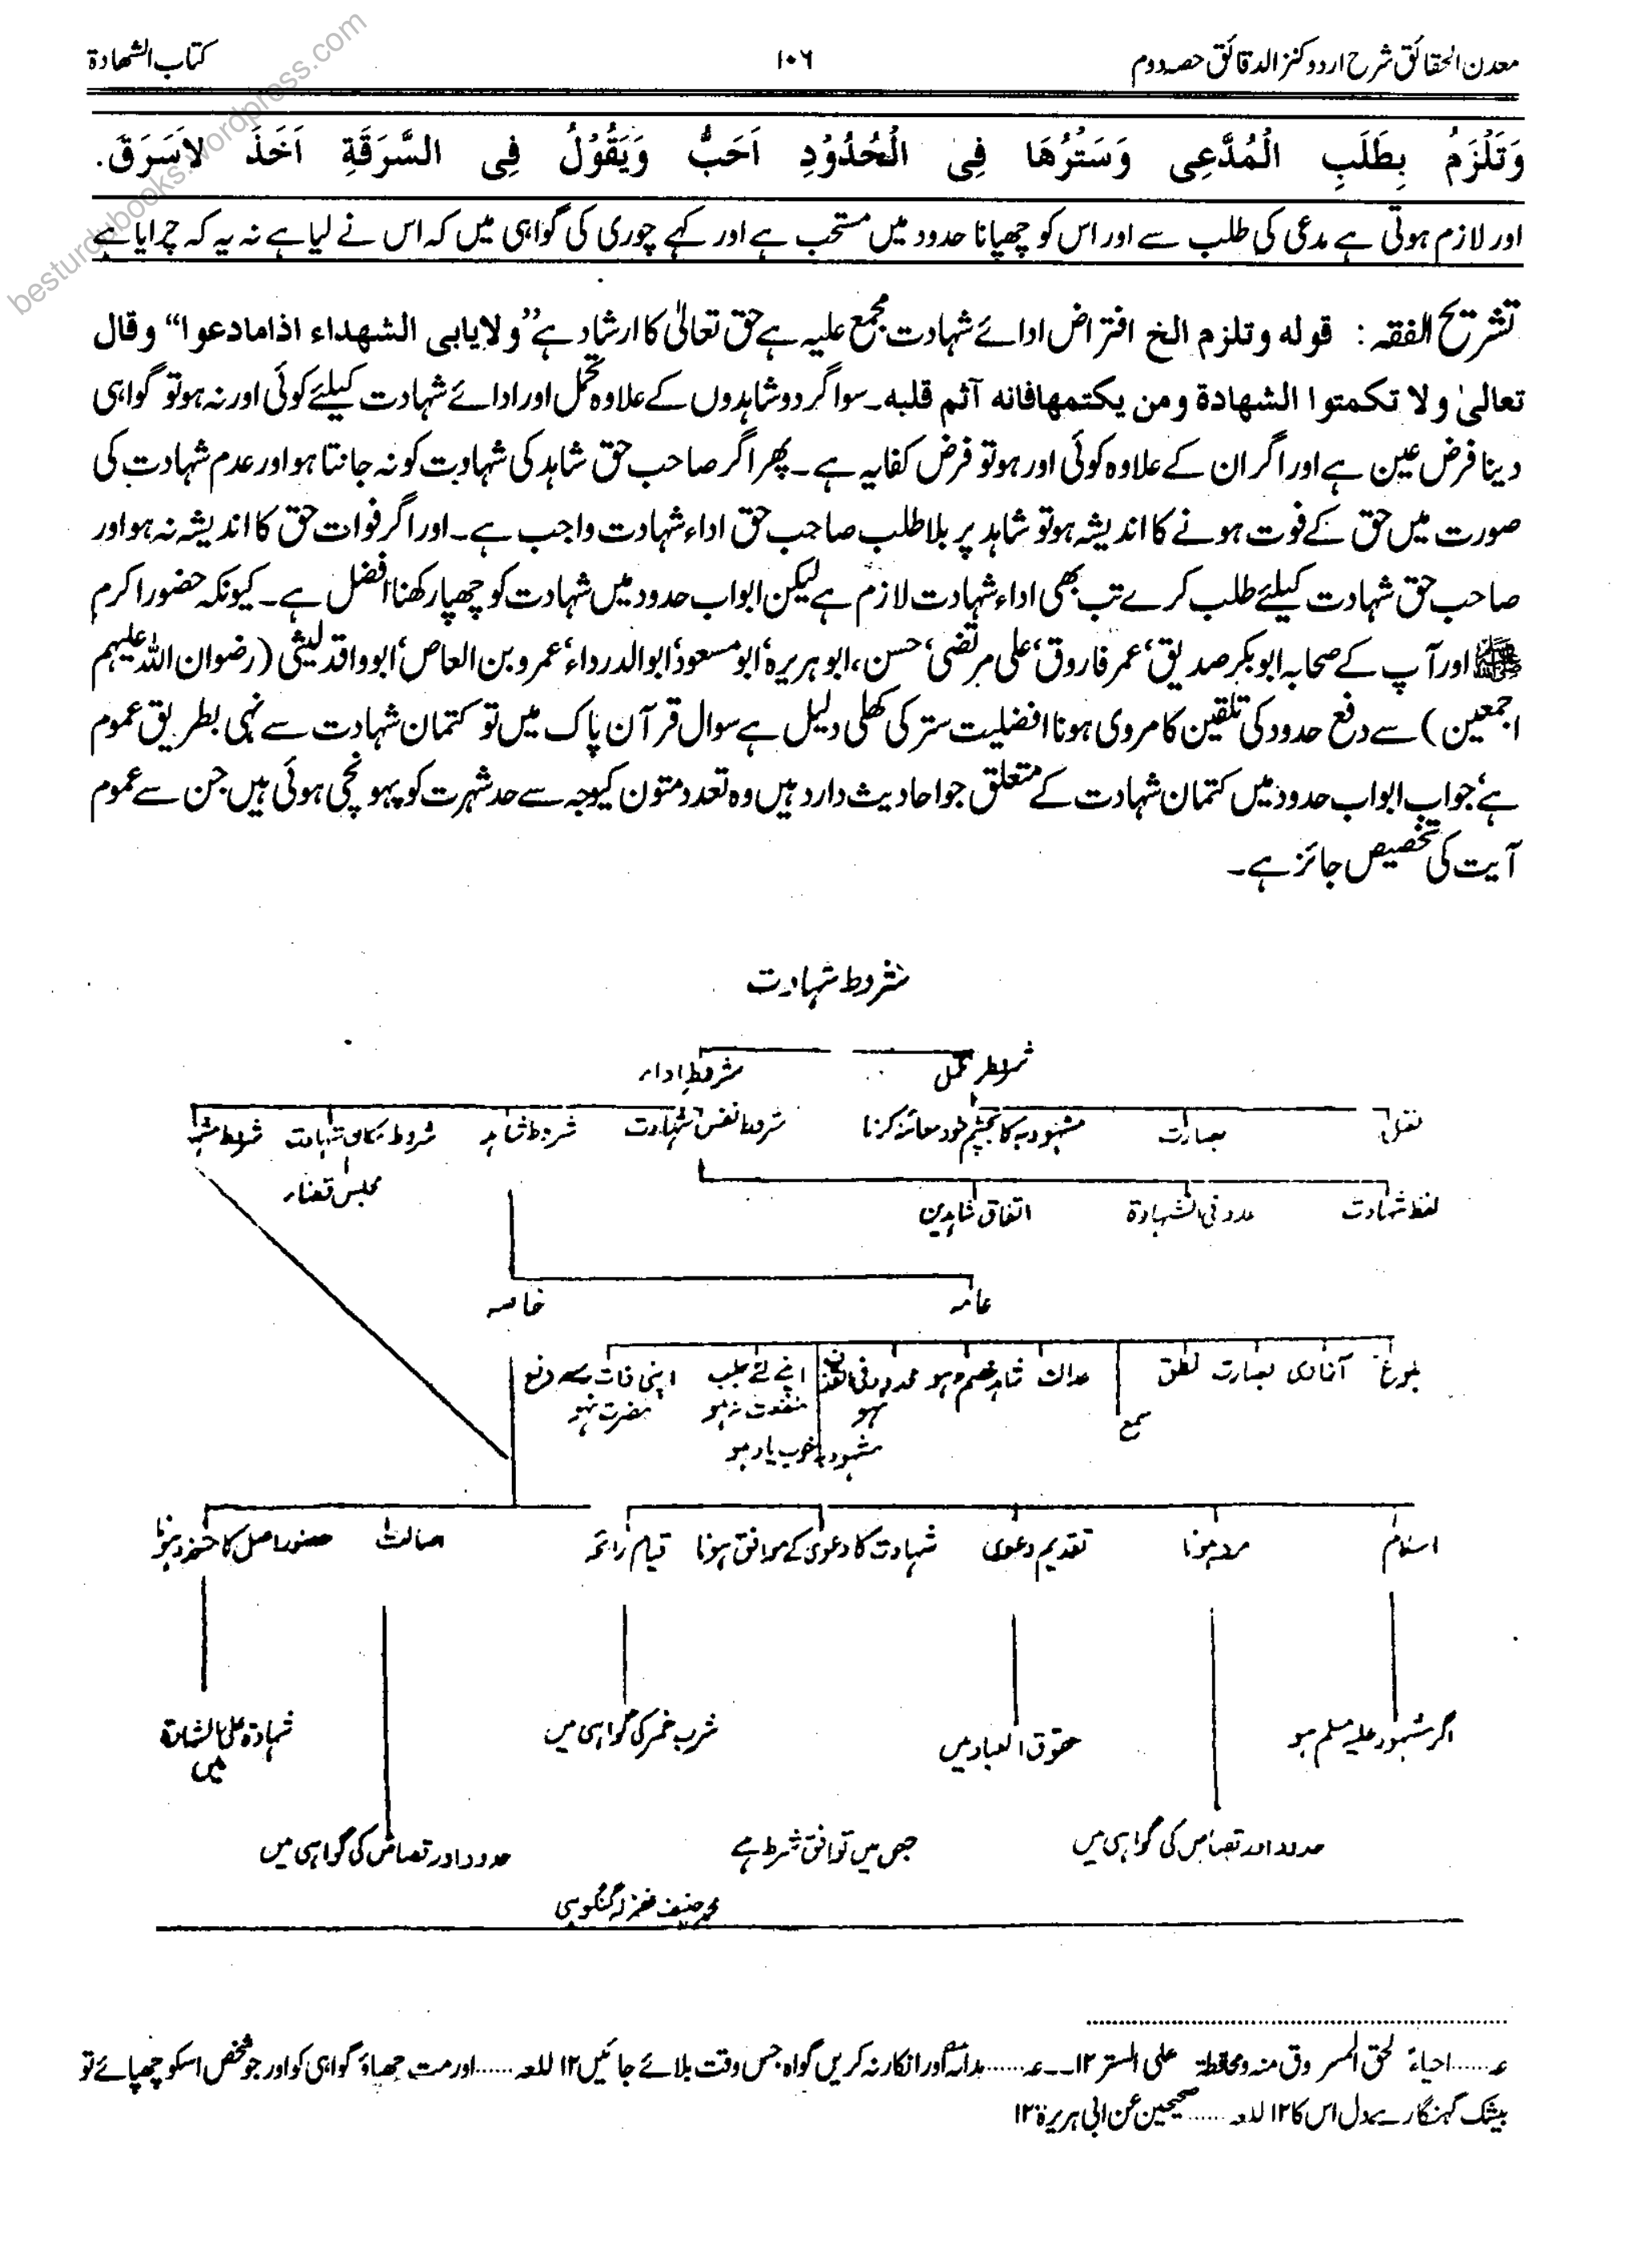 معدن الحقائق شرح اردو کنز الدقائق حصہ دوم
۱۰۶
کتاب الشھادة
وَتَلْزَمُ بِطَلَبِ الْمُدَّعِی وَسَتْرُهَا فِی الْحُدُوْدِ اَحَبُّ وَیَقُوْلُ فِی السَّرَقَةِ اَخَذَ لَاسَرَقَ.
اور لازم ہوتی ہے مدعی کی طلب سے اور اس کو چھپانا حدود میں مستحب ہے اور کہے چوری کی گواہی میں کہ اس نے لیا ہے نہ یہ کہ چرایا ہے
تشریح الفقہ: قوله وتلزم الخ افتراض ادائے شہادت مجمع علیہ ہے حق تعالیٰ کا ارشاد ہے ”ولایابی الشهداء اذامادعوا“ وقال
تعالیٰ ولا تکمتوا الشهادة ومن یکتمهافانه آثم قلبه۔ سو اگر دو شاہدوں کے علاوہ تحمل اور ادائے شہادت کیلئے کوئی اور نہ ہو تو گواہی
دینا فرض عین ہے اور اگر ان کے علاوہ کوئی اور ہو تو فرض کفایہ ہے۔ پھر اگر صاحب حق شاہد کی شہادت کو نہ جانتا ہو اور عدم شہادت کی
صورت میں حق کے فوت ہونے کا اندیشہ ہو تو شاہد پر بلا طلب صاحب حق اداء شہادت واجب ہے۔ اور اگر فوات حق کا اندیشہ نہ ہو اور
صاحب حق شہادت کیلئے طلب کرے تب بھی اداء شہادت لازم ہے لیکن ابواب حدود میں شہادت کو چھپا رکھنا افضل ہے۔ کیونکہ حضور اکرم
ﷺ اور آپ کے صحابہ ابو بکر صدیق، عمر فاروق، علی مرتضی، حسن، ابو ہریرہ، ابو مسعود، ابو الدرداء، عمرو بن العاص، ابو واقد لیثی (رضوان اللہ علیہم
اجمعین) سے دفع حدود کی تلقین کا مروی ہونا افضلیت ستر کی کھلی دلیل ہے سوال قرآن پاک میں تو کتمان شہادت سے نہی بطریق عموم
ہے، جواب ابواب حدود میں کتمان شہادت کے متعلق جو احادیث دارد ہیں وہ تعدد متون کیوجہ سے حد شہرت کو پہونچی ہوئی ہیں جن سے عموم
آیت کی تخصیص جائز ہے۔
شروط شہادت
شروط تحمل
شروط اداء
عقل
بصارت
مشہود بہ کا بچشم خود معائنہ کرنا
شروط نفس شہادت
شروط شاہد
شروط مکان شہادت
مجلس قضاء
لفظ شہادت
عدد فی الشہادة
اتفاق شاہدین
عامہ
خاصہ
بلوغ
آزادی
بصارت
نطق
سمع
عدالت
شاہد خصم نہ ہو
محدود فی القذف نہ ہو
اپنے لئے جلب منفعت نہ ہو
اپنی ذات سے دفع مضرت نہ ہو
مشہود بہ خوب یاد ہو
اسلام
مرد ہونا
تقدیم دعوی
شہادت کا دعوی کے موافق ہونا
قیام رائحہ
اصالت
حضور اصل کا متعذر ہونا
اگر مشہود علیہ مسلم ہو
حقوق العباد میں
شرب خمر کی گواہی میں
شہادة علی الشہادة میں
حدود اور قصاص کی گواہی میں
جس میں توافق شرط ہے
حدود اور قصاص کی گواہی میں
محمد حنیف غفرلہ گنگوہی
عہ......احیاءً لحق المسروق منہ ومحافظۃ علی الستر ۱۲۔۔عہ......اور انکار نہ کریں گواہ جس وقت بلائے جائیں ۱۲ للعہ......اور مت چھپاؤ گواہی کو اور جو شخص اسکو چھپائے تو
بیشک گہنگار ہے دل اس کا ۱۲ للعہ......صحیحین عن ابی ہریرۃ ۱۲
besturdubooks.wordpress.com